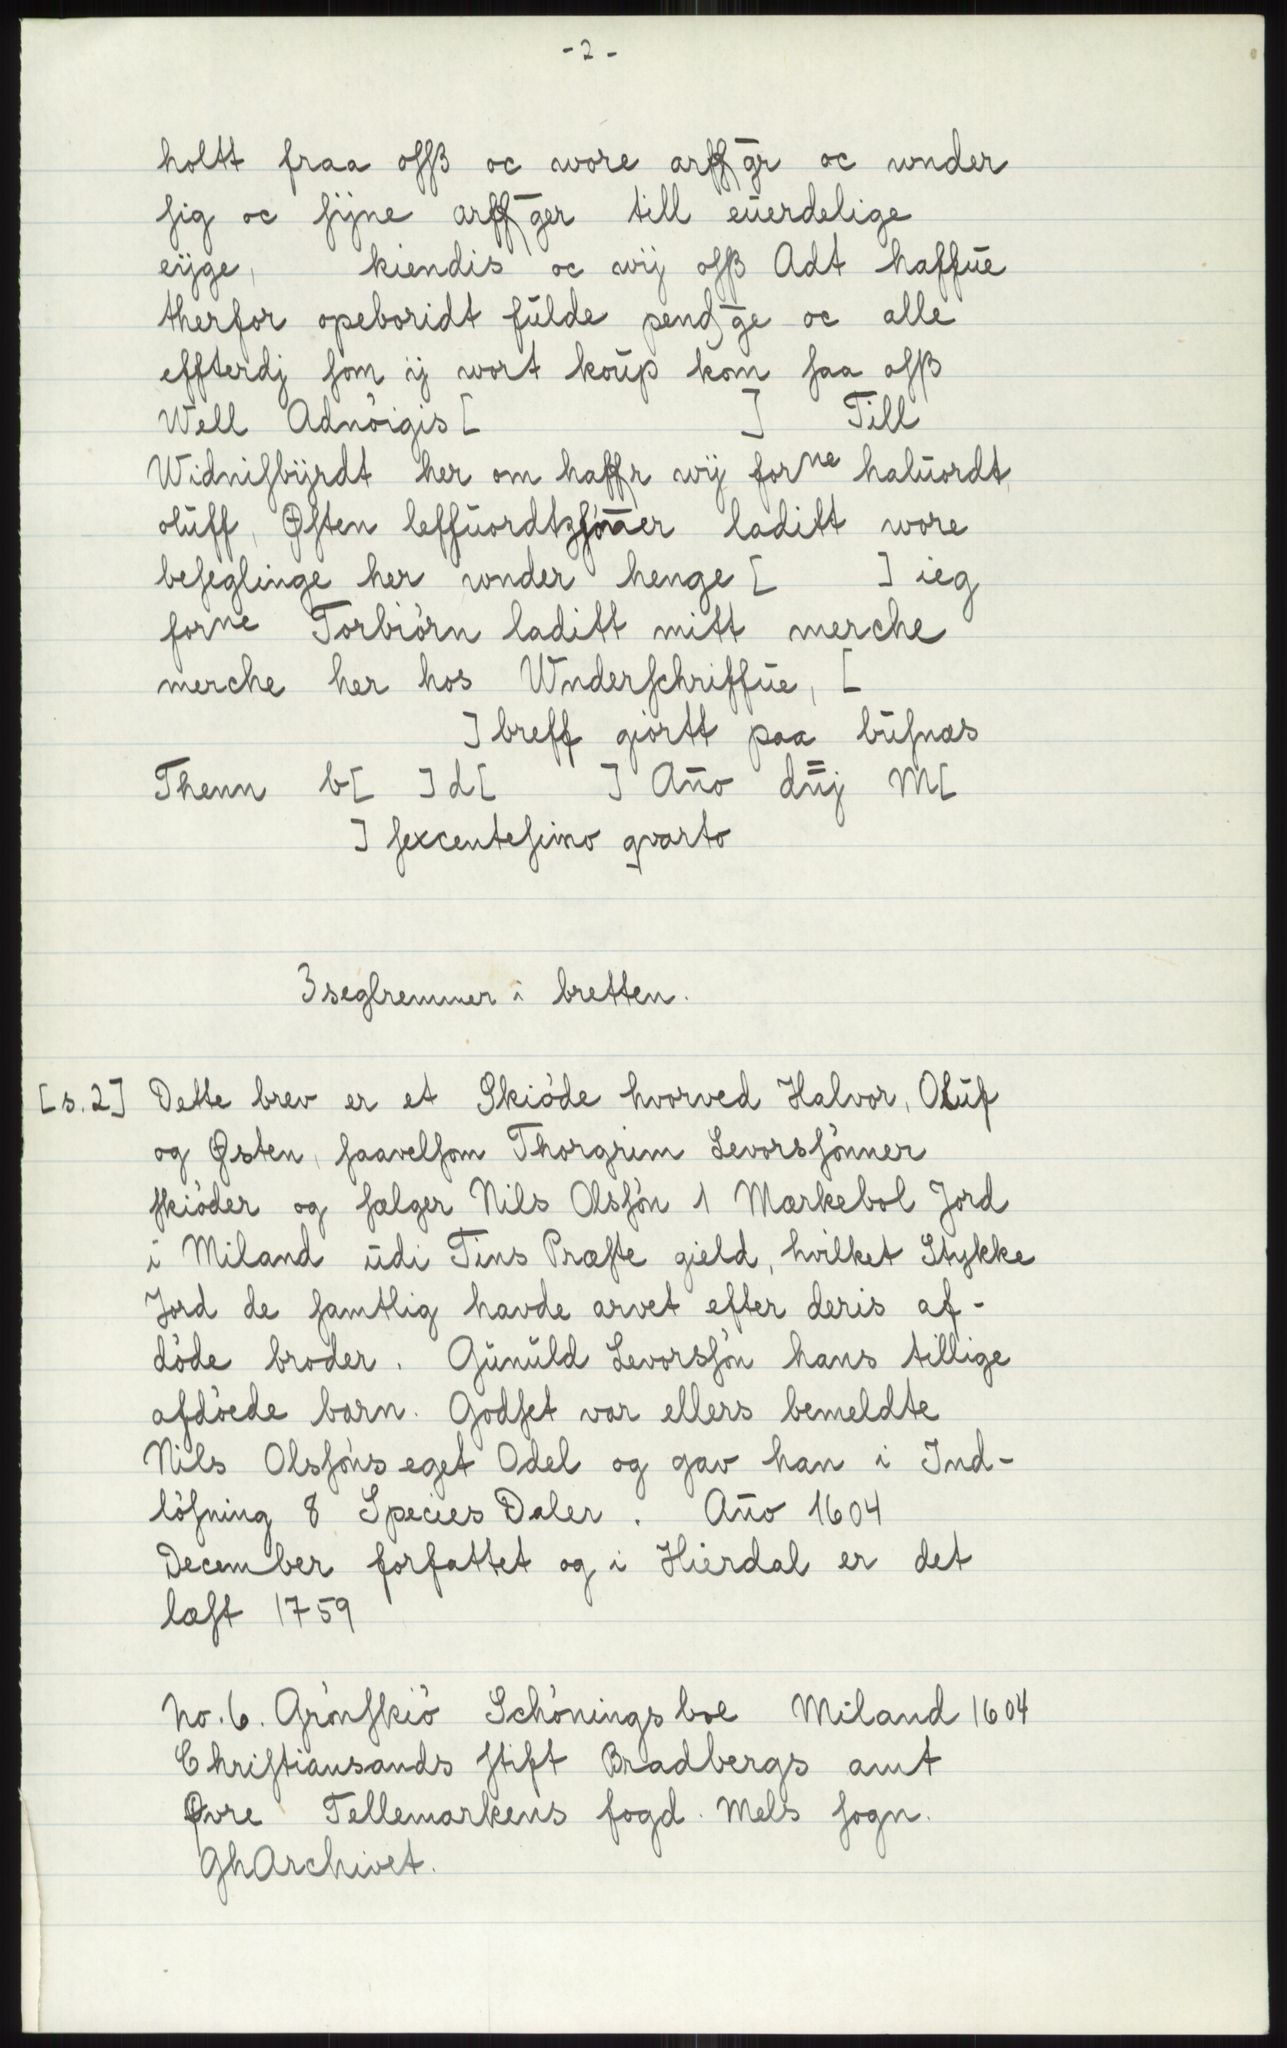 -2-
holtt fraa ofß oc wore arffḡr oc wnder
sig oc sijne arffḡer till eűerdelige
eijge, kiendis oc wij ofß Adt haffűe
therfor opeboridt fűlde pendḡe oc alle
effterdj som ij wort koűp kom saa ofß
Well Adnöigis [ ] Till
Widnisbijrdt her om haffr wij forne halűordt,
olűff, Østen leffűordtzsön̄er laditt wore
beseglinge her wnder henge [ ] ieg
forne Torbiörn laditt mitt merche
merche her hos Wnderschriffűe, [
] breff giortt paa bűsnæs
Thenn b[ ] d[ ] An̄o dn̄j M[
] sexcentesimo qvarto
3 seglremmer i bretten.
[s. 2] Dette brev er et Skiöde hvorved Halvor, Olűf
og Østen, saavelsom Thorgrim Levorssönner
skiöder og sælger Nils Olssön 1 Markebol Jord
i Miland űdi Tins Præste gield, hvilket Stykke
Jord de samtlig havde arvet efter deris af-
döde broder. Gűnűld Levorssön hans tillige
afdöede barn. Godset var ellers bemeldte
Nils Olssöns eget Odel og gav han i Ind-
lösning 8 Species Daler. An̄o 1604
December forfattet og i Hierdal er det
læst 1759
No. 6. Grönskiö Schönings boe Miland 1604
Christiansands stift Bradbergs amt
Øvre Tellemarkens fogd. Mels sogn.
GhArchivet.